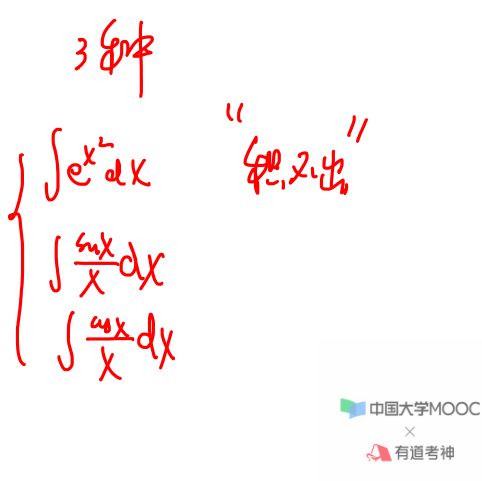 3种
∫e^{x^2}dx
"积不出"
∫\frac{sinx}{x}dx
∫\frac{cosx}{x}dx
中国大学MOOC
×
有道考神